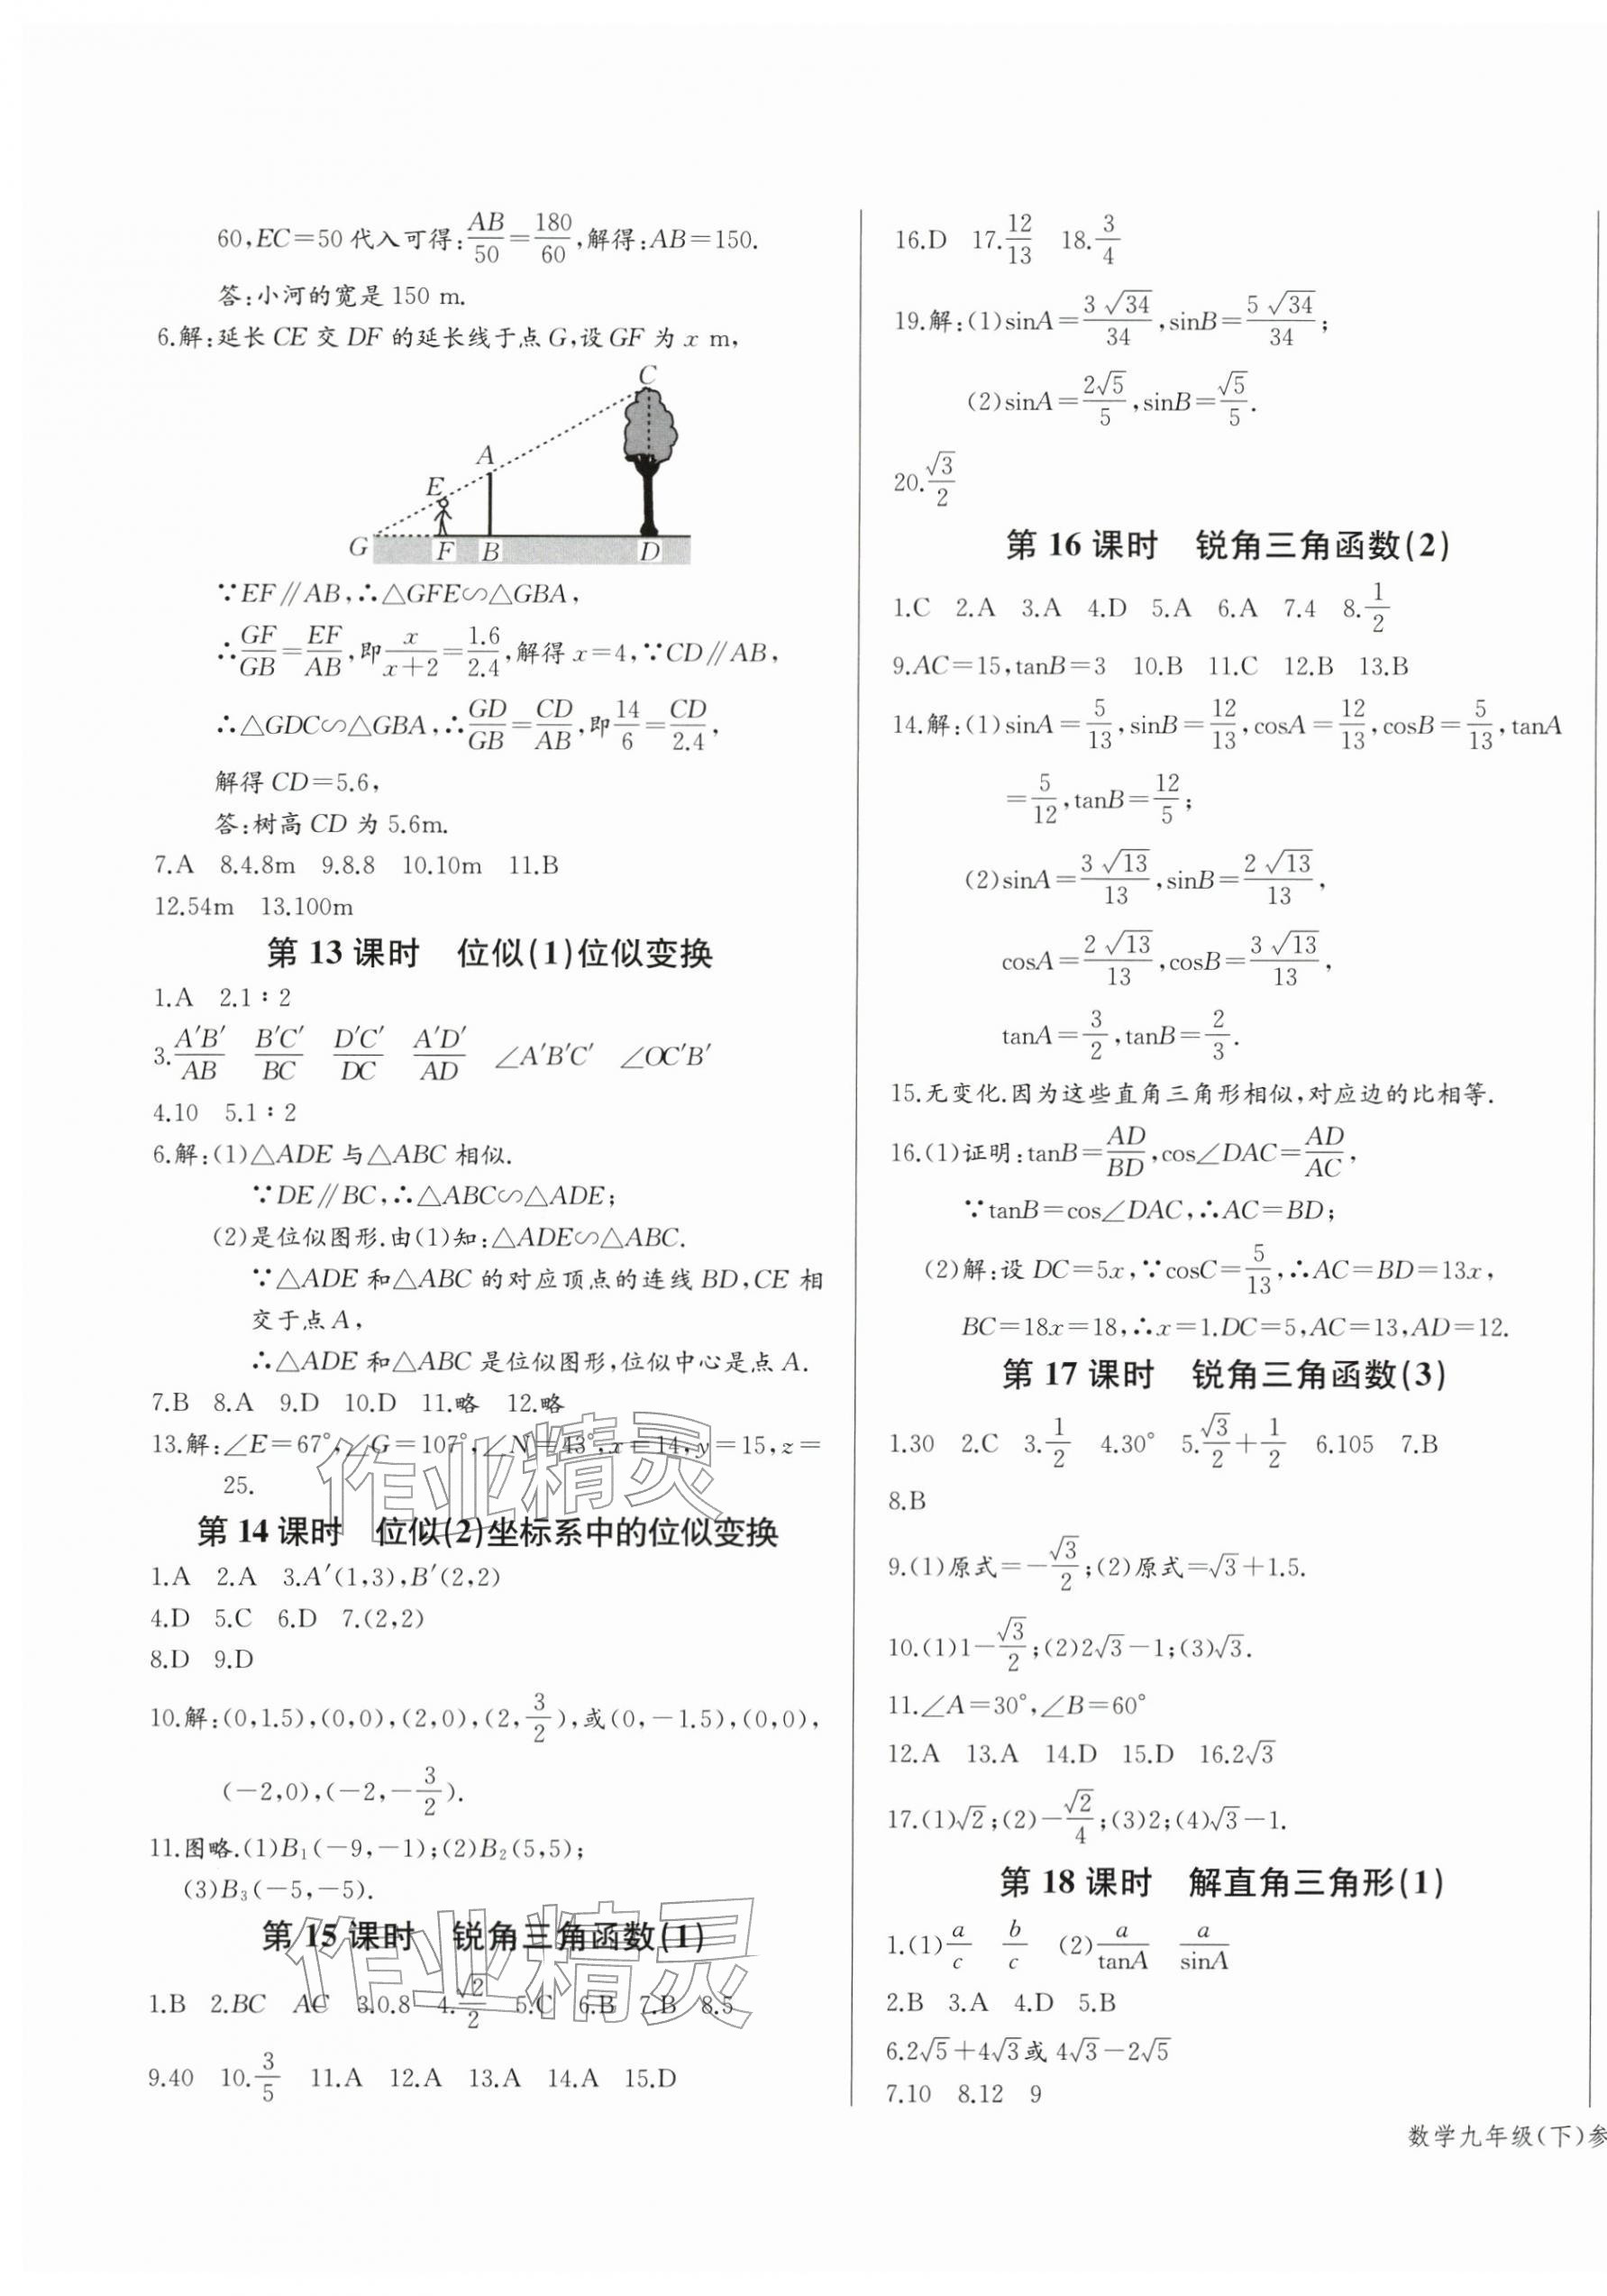 60,EC=50 代入可得:AB/50=180/60,解得:AB=150.
答:小河的宽是 150 m.
6.解:延长 CE 交 DF 的延长线于点 G,设 GF 为 x m,
C
A
E
G F B D
∵EF∥AB,∴△GFE∽△GBA,
∴GF/GB=EF/AB,即x/(x+2)=1.6/2.4,解得 x=4,∵CD∥AB,
∴△GDC∽△GBA,∴GD/GB=CD/AB,即14/6=CD/2.4,
解得 CD=5.6,
答:树高 CD 为 5.6m.
7.A 8.4.8m 9.8.8 10.10m 11.B
12.54m 13.100m
第 13 课时 位似(1)位似变换
1.A 2.1∶2
3.A′B′/AB B′C′/BC D′C′/DC A′D′/AD ∠A′B′C′ ∠OC′B′
4.10 5.1∶2
6.解:(1)△ADE 与△ABC 相似.
∵DE∥BC,∴△ABC∽△ADE;
(2)是位似图形.由(1)知:△ADE∽△ABC.
∵△ADE 和△ABC 的对应顶点的连线 BD,CE 相
交于点 A,
∴△ADE 和△ABC 是位似图形,位似中心是点 A.
7.B 8.A 9.D 10.D 11.略 12.略
13.解:∠E=67°,∠G=107°,∠N=43°,x=14,y=15,z=
25.
作业精灵
第 14 课时 位似(2)坐标系中的位似变换
1.A 2.A 3.A′(1,3),B′(2,2)
4.D 5.C 6.D 7.(2,2)
8.D 9.D
10.解:(0,1.5),(0,0),(2,0),(2,3/2),或(0,-1.5),(0,0),
(-2,0),(-2,-3/2).
11.图略.(1)B₁(-9,-1);(2)B₂(5,5);
(3)B₃(-5,-5).
第 15 课时 锐角三角函数(1)
作业精灵
1.B 2.BC AC 3.0.8 4.√2/2 5.C 6.B 7.B 8.5
9.40 10.3/5 11.A 12.A 13.A 14.A 15.D
16.D 17.12/13 18.3/4
19.解:(1)sinA=3√34/34,sinB=5√34/34;
(2)sinA=2√5/5,sinB=√5/5.
20.√3/2
第 16 课时 锐角三角函数(2)
1.C 2.A 3.A 4.D 5.A 6.A 7.4 8.1/2
9.AC=15,tanB=3 10.B 11.C 12.B 13.B
14.解:(1)sinA=5/13,sinB=12/13,cosA=12/13,cosB=5/13,tanA
=5/12,tanB=12/5;
(2)sinA=3√13/13,sinB=2√13/13,
cosA=2√13/13,cosB=3√13/13,
tanA=3/2,tanB=2/3.
15.无变化.因为这些直角三角形相似,对应边的比相等.
16.(1)证明:tanB=AD/BD,cos∠DAC=AD/AC,
∵tanB=cos∠DAC,∴AC=BD;
(2)解:设 DC=5x,∵cosC=5/13,∴AC=BD=13x,
BC=18x=18,∴x=1.DC=5,AC=13,AD=12.
第 17 课时 锐角三角函数(3)
1.30 2.C 3.1/2 4.30° 5.√3/2+1/2 6.105 7.B
8.B
9.(1)原式=-√3/2;(2)原式=√3+1.5.
10.(1)1-√3/2;(2)2√3-1;(3)√3.
11.∠A=30°,∠B=60°
12.A 13.A 14.D 15.D 16.2√3
17.(1)√2;(2)-√2/4;(3)2;(4)√3-1.
第 18 课时 解直角三角形(1)
1.(1)a/c b/c (2)a/tanA a/sinA
2.B 3.A 4.D 5.B
6.2√5+4√3或 4√3-2√5
7.10 8.12 9
数学九年级(下)参